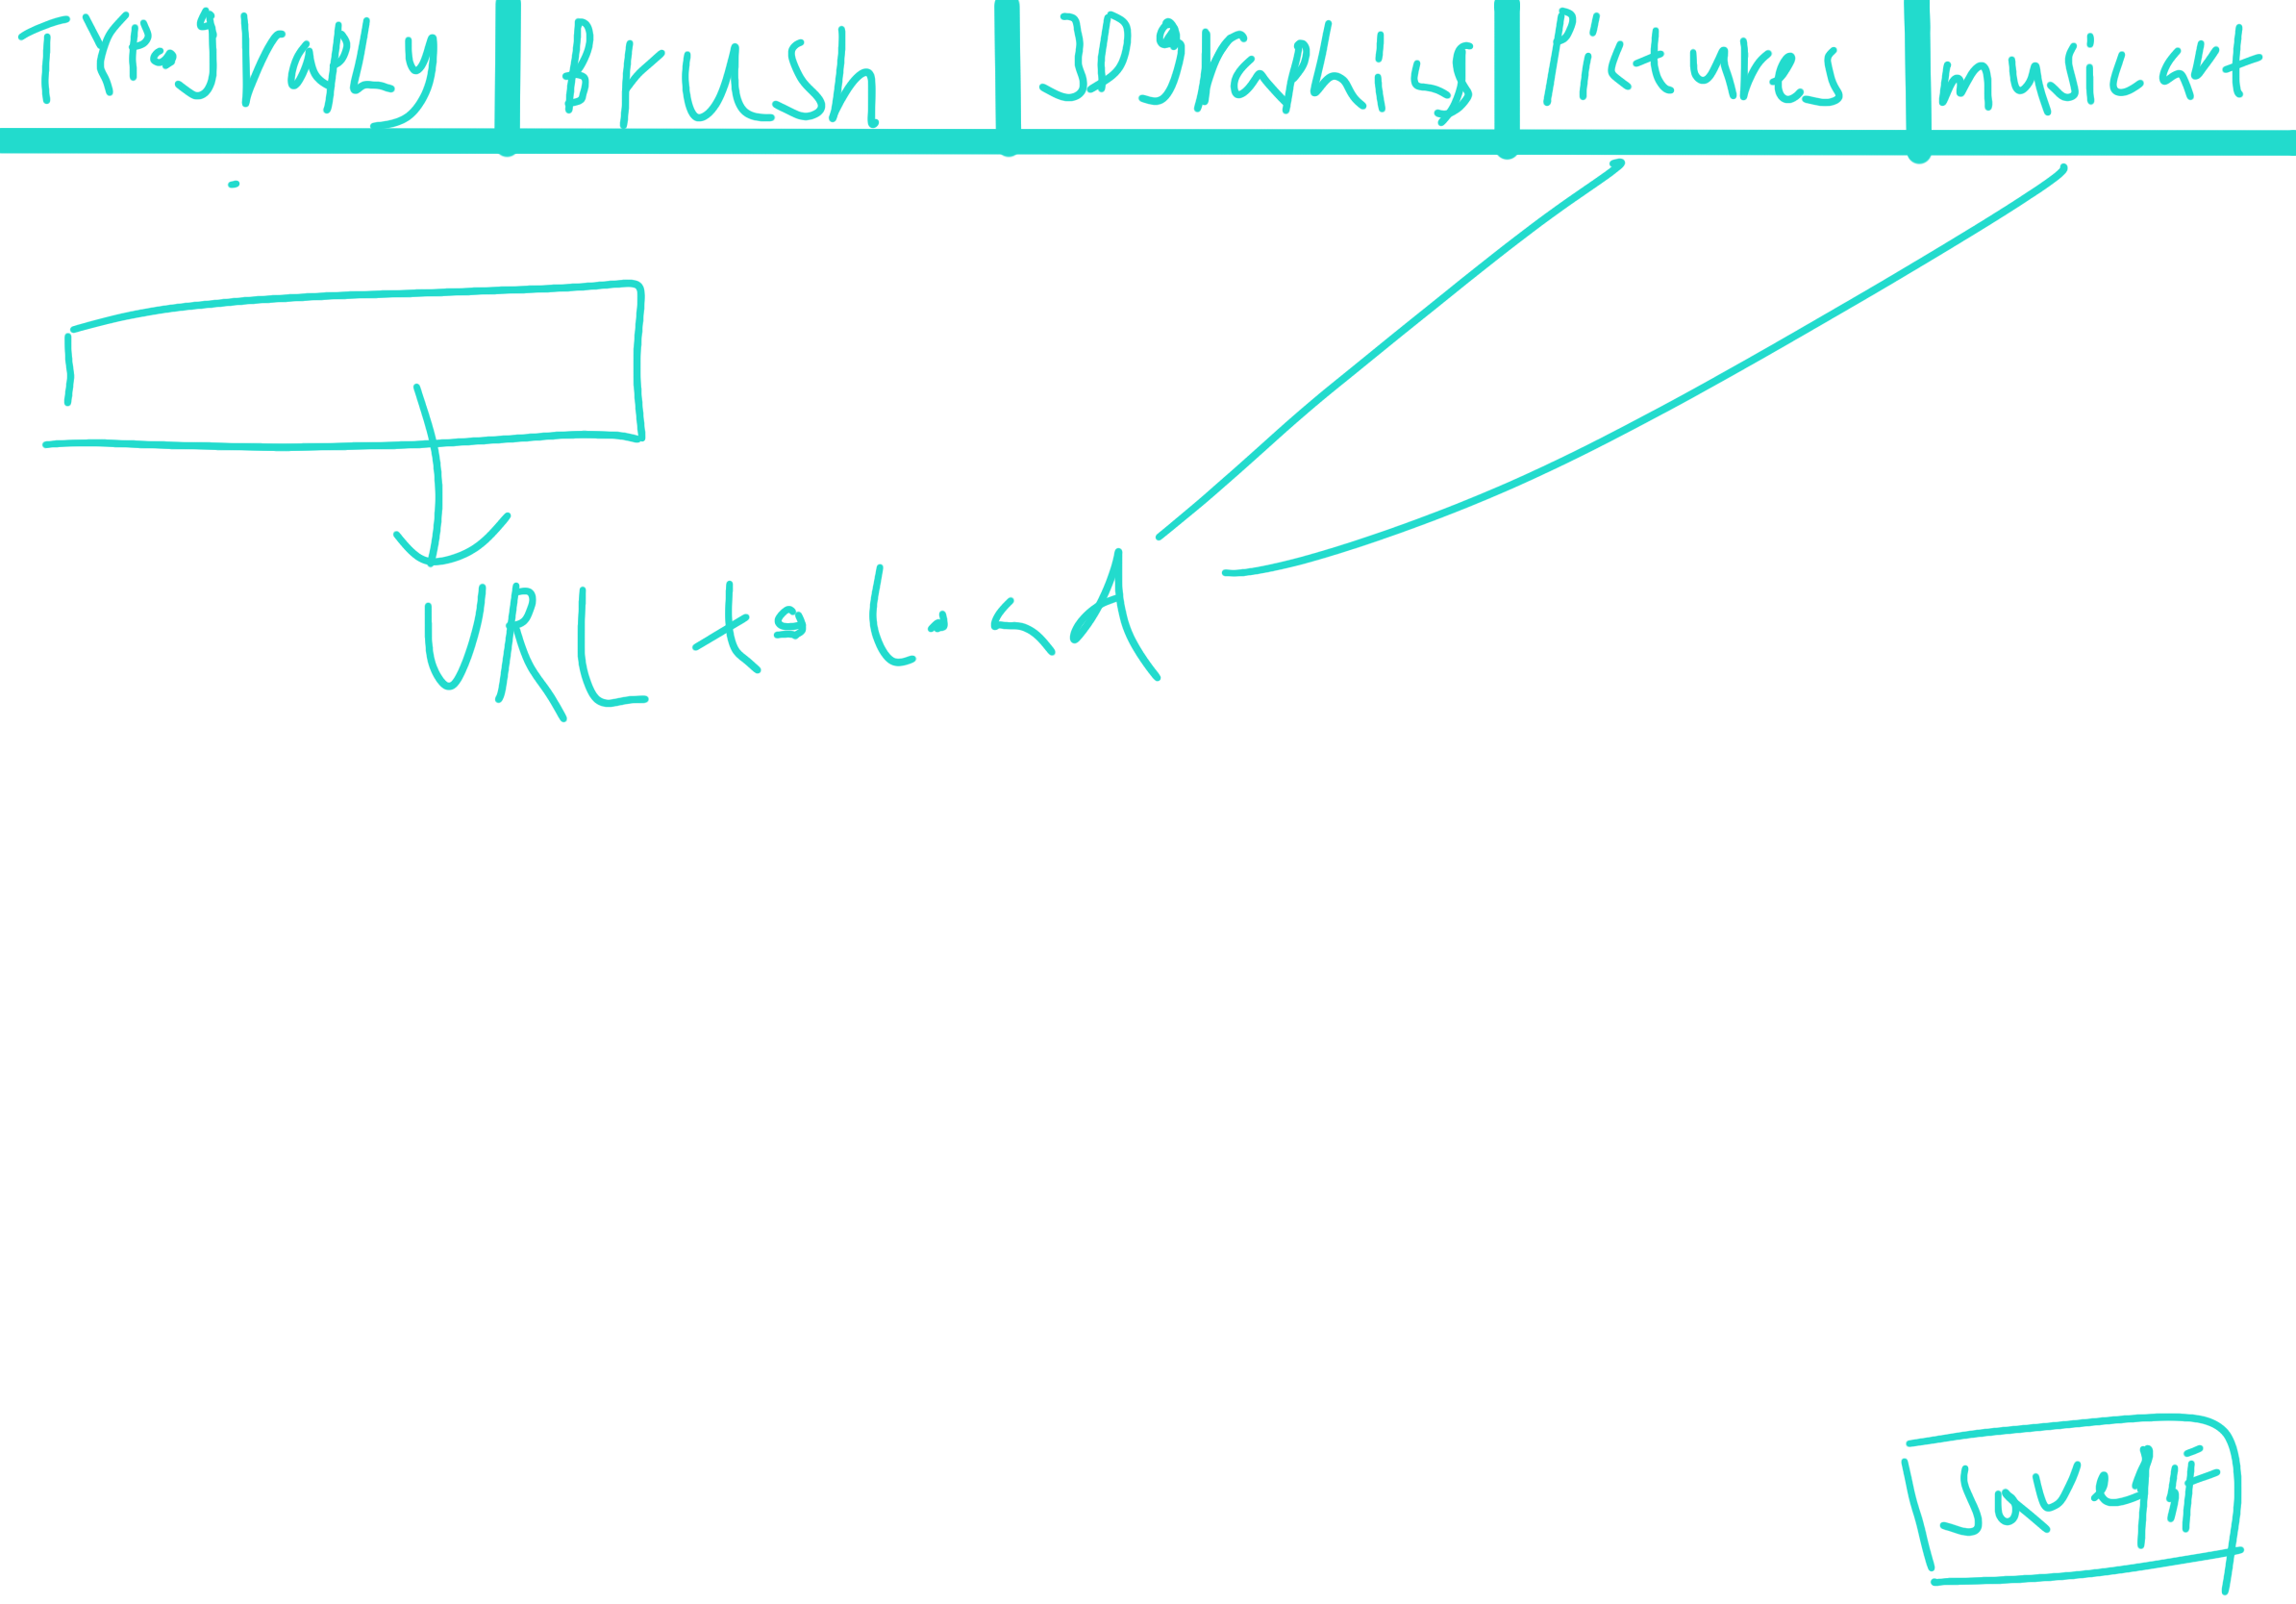 Typography Brush 3D graphics Pictures music
URL to load
Save